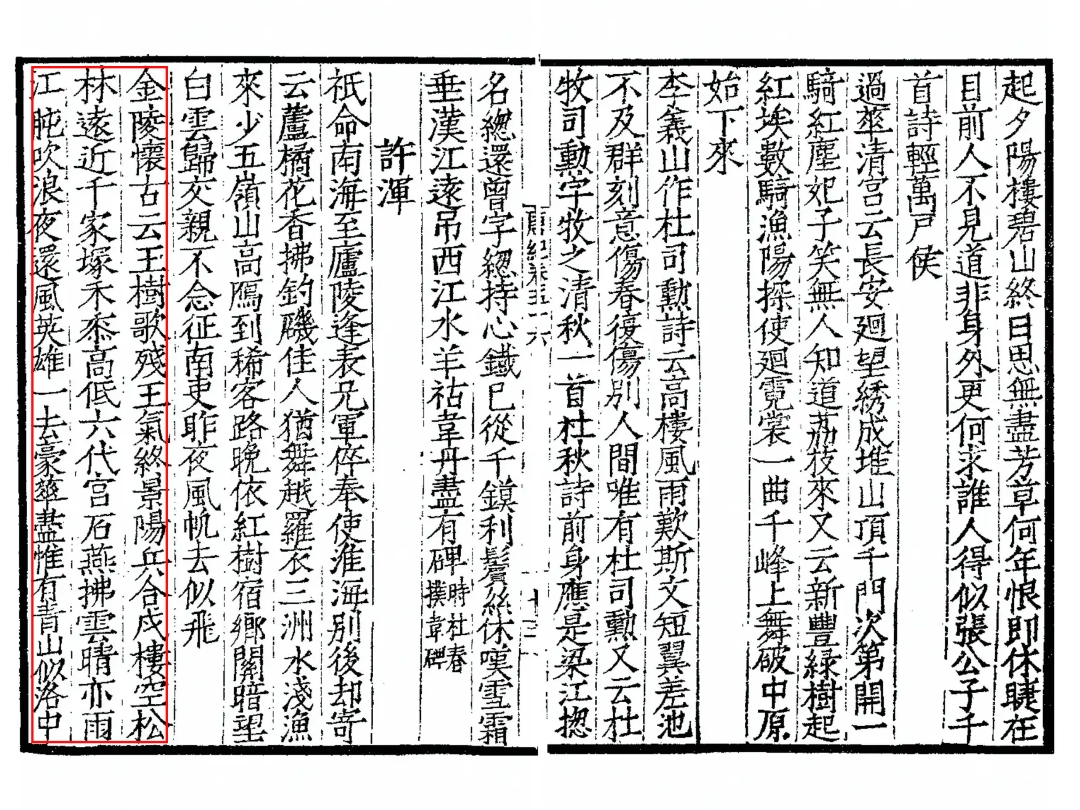 起夕陽樓碧山終日思無盡芳草何年恨即休睫在
目前人不見道非身外更何求誰人得似張公子千
首詩輕萬戶侯
過華清宮云長安廻望綉成堆山頂千門次第開一
騎紅塵妃子笑無人知道荔枝來又云新豐綠樹起
紅埃數騎漁陽探使廻霓裳一曲千峰上舞破中原
始下來
李義山作杜司勳詩云高樓風雨歎斯文短翼差池
不及群刻意傷春復傷別人間唯有杜司勳又云杜
牧司勳字牧之清秋一首杜秋詩前身應是梁江揔
名總還曾字總持心鐵已從千鏌利鬢絲休嘆雪霜
垂漢江遠吊西江水羊祜韋丹盡有碑時杜春撰韋碑
許渾
祇命南海至廬陵逢表兄軍倅奉使淮海別後却寄
云蘆橘花香拂釣磯佳人猶舞越羅衣三洲水淺漁
來少五嶺山高鴈到稀客路晚依紅樹宿鄉關暗望
白雲歸交親不念征南吏昨夜風帆去似飛
金陵懷古云玉樹歌殘王氣終景陽兵合戍樓空松
林遠近千家塚禾黍高低六代宮石燕拂雲晴亦雨
江肫吹浪夜還風英雄一去豪華盡惟有青山似洛中